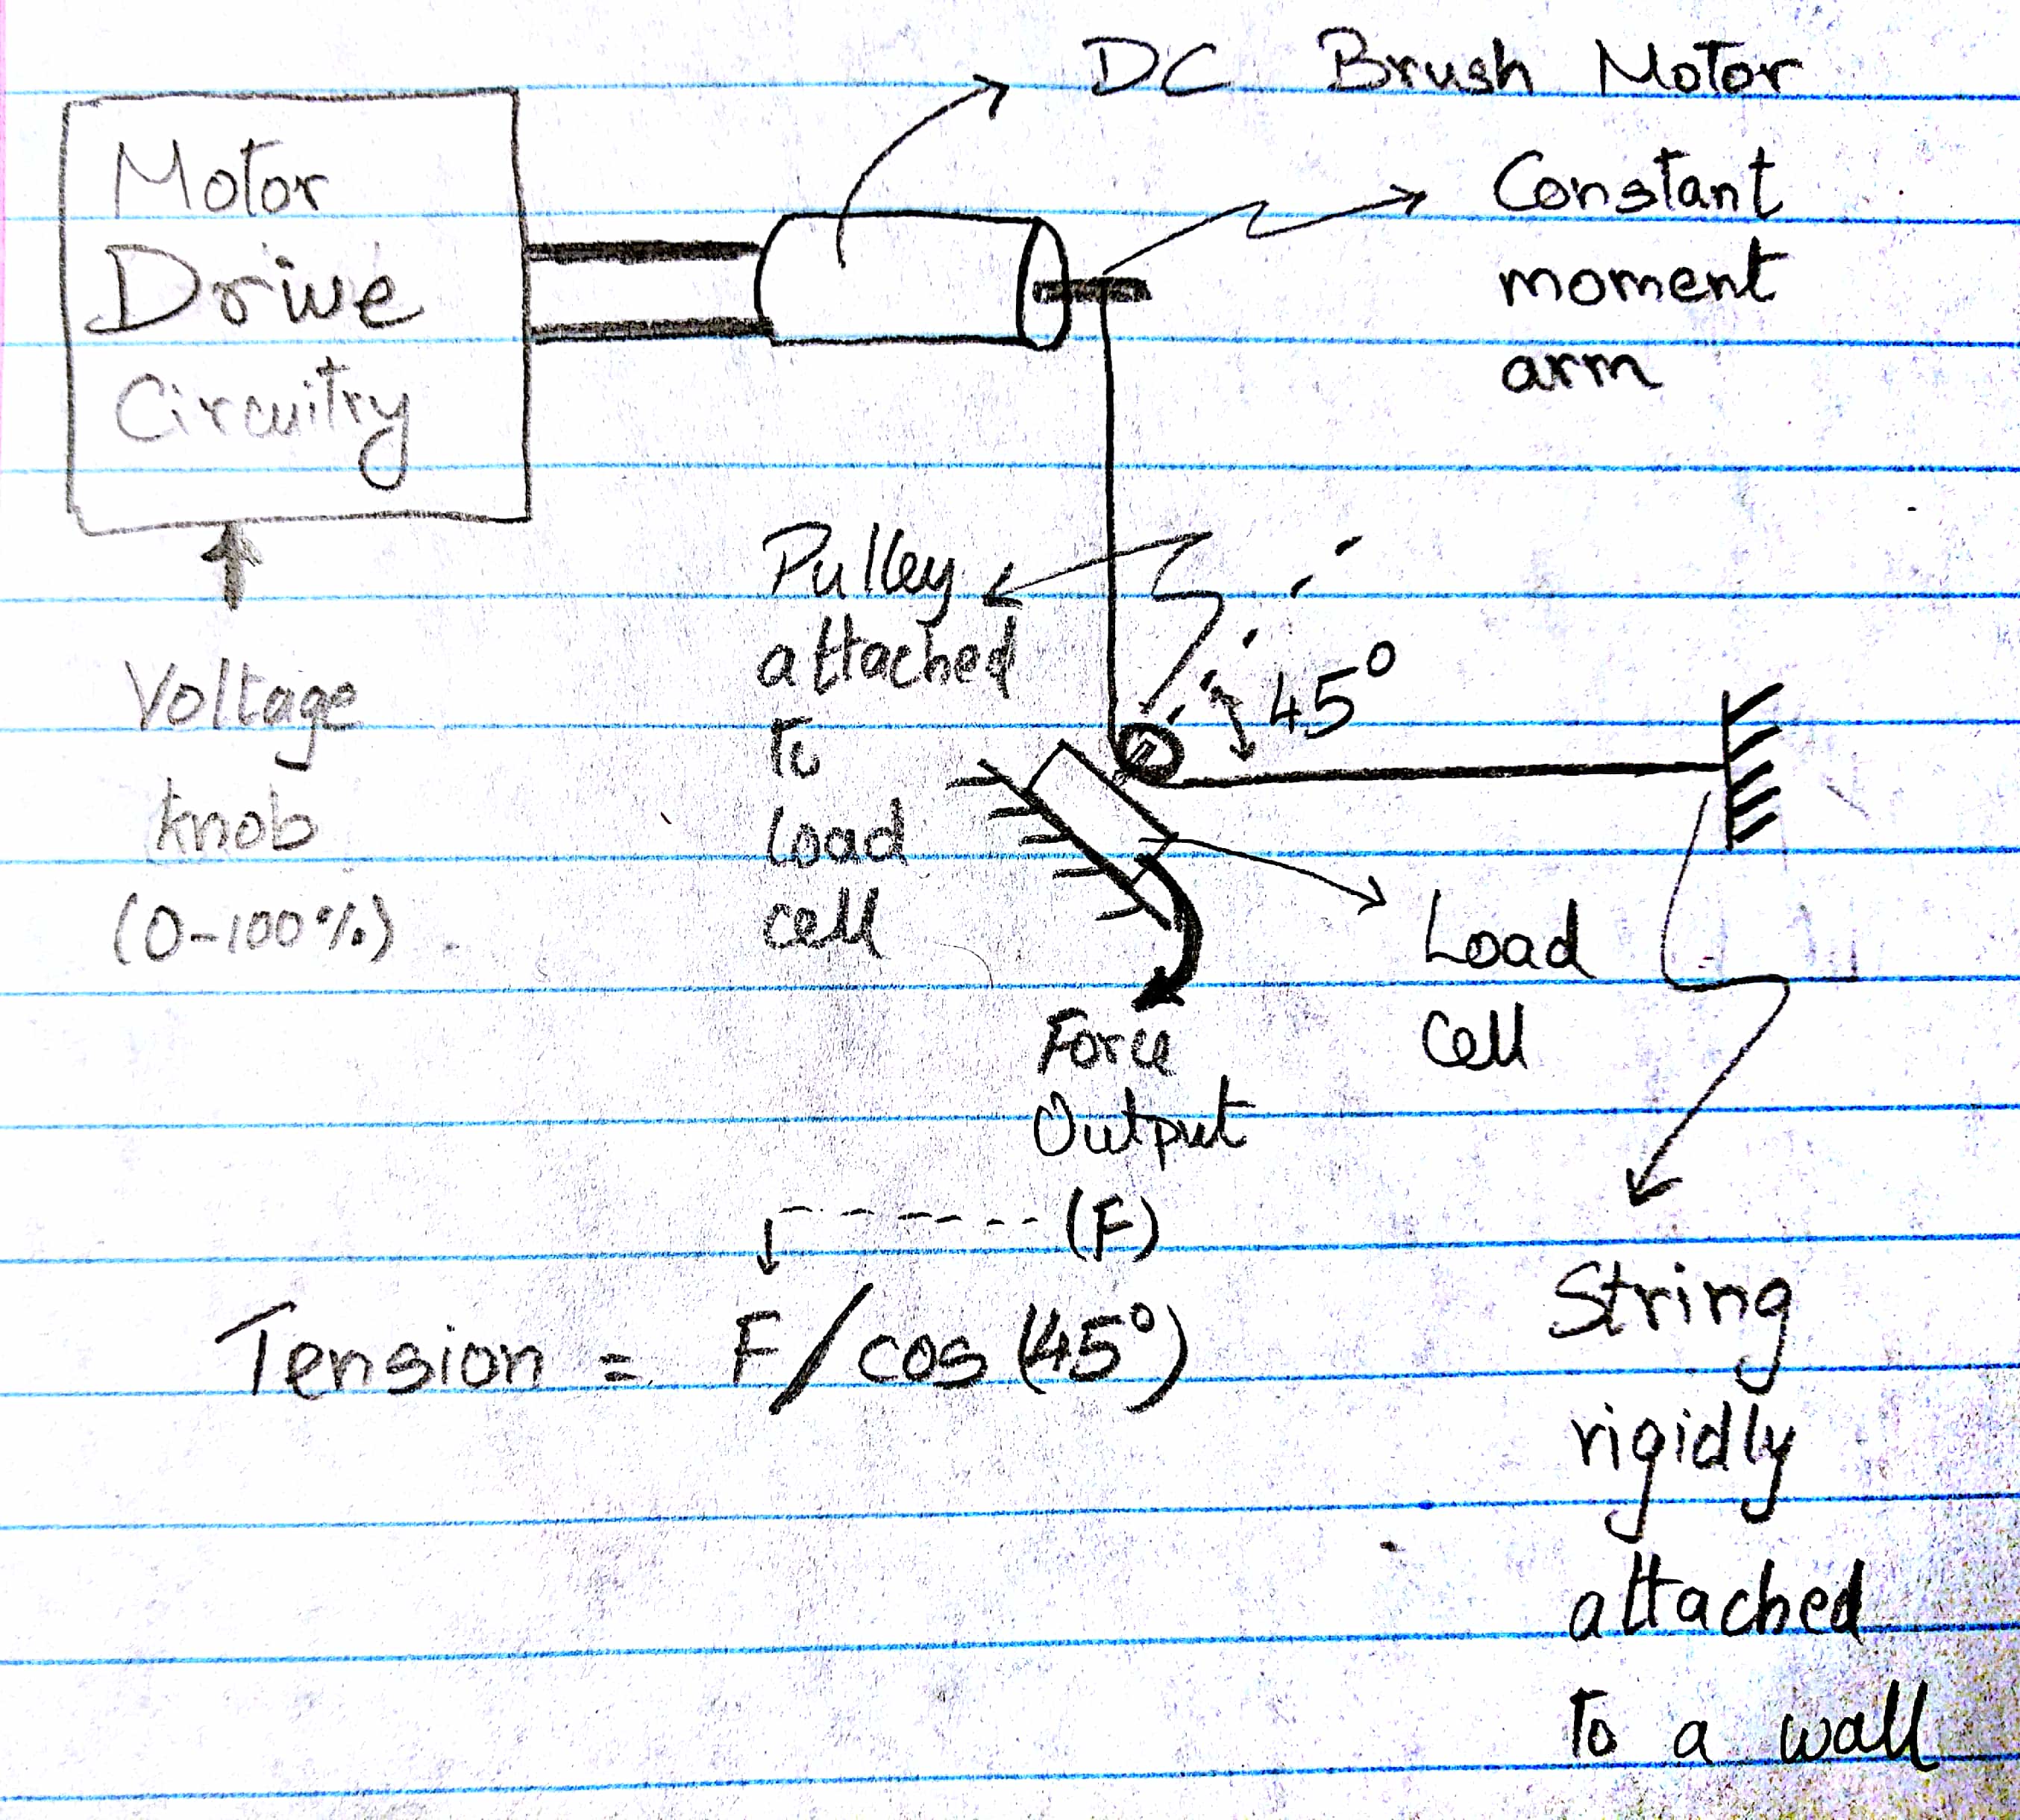 DC Brush Motor
Motor
Drive
Circuitry
Constant
moment
arm
Pulley
attached
To
load
cell
45°
Voltage
knob
(0-100%)
Load
Cell
Force
Output
(F)
Tension = F/cos(45°)
String
rigidly
attached
To a wall